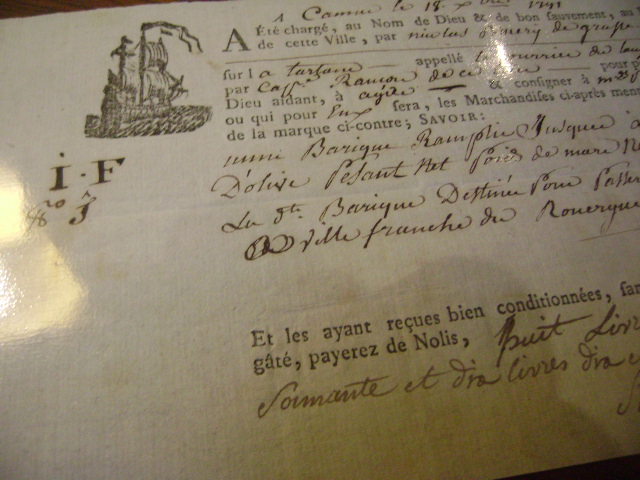 A Canne le 18 x bre 1791
A Été chargé, au Nom de Dieu & de bon sauvement, au
de cette Ville, par nicolas de grasse
sur la tartane appellé de
par Capp.e Ramon de ce pour
Dieu aidant, à agde & consigner à
ou qui pour Eux sera, les Marchandises ci-après men
de la marque ci-contre; SAVOIR:
unne Barique Ramplie Jusques à
D'olive Pesant Net poids de marc
La d.te Barique Destinée pour Passer
A Ville franche de Rouergue
I·F
N.o 3
Et les ayant reçues bien conditionnées, san
gâté, payerez de Nolis, huit Livr
Soixante et dix livres